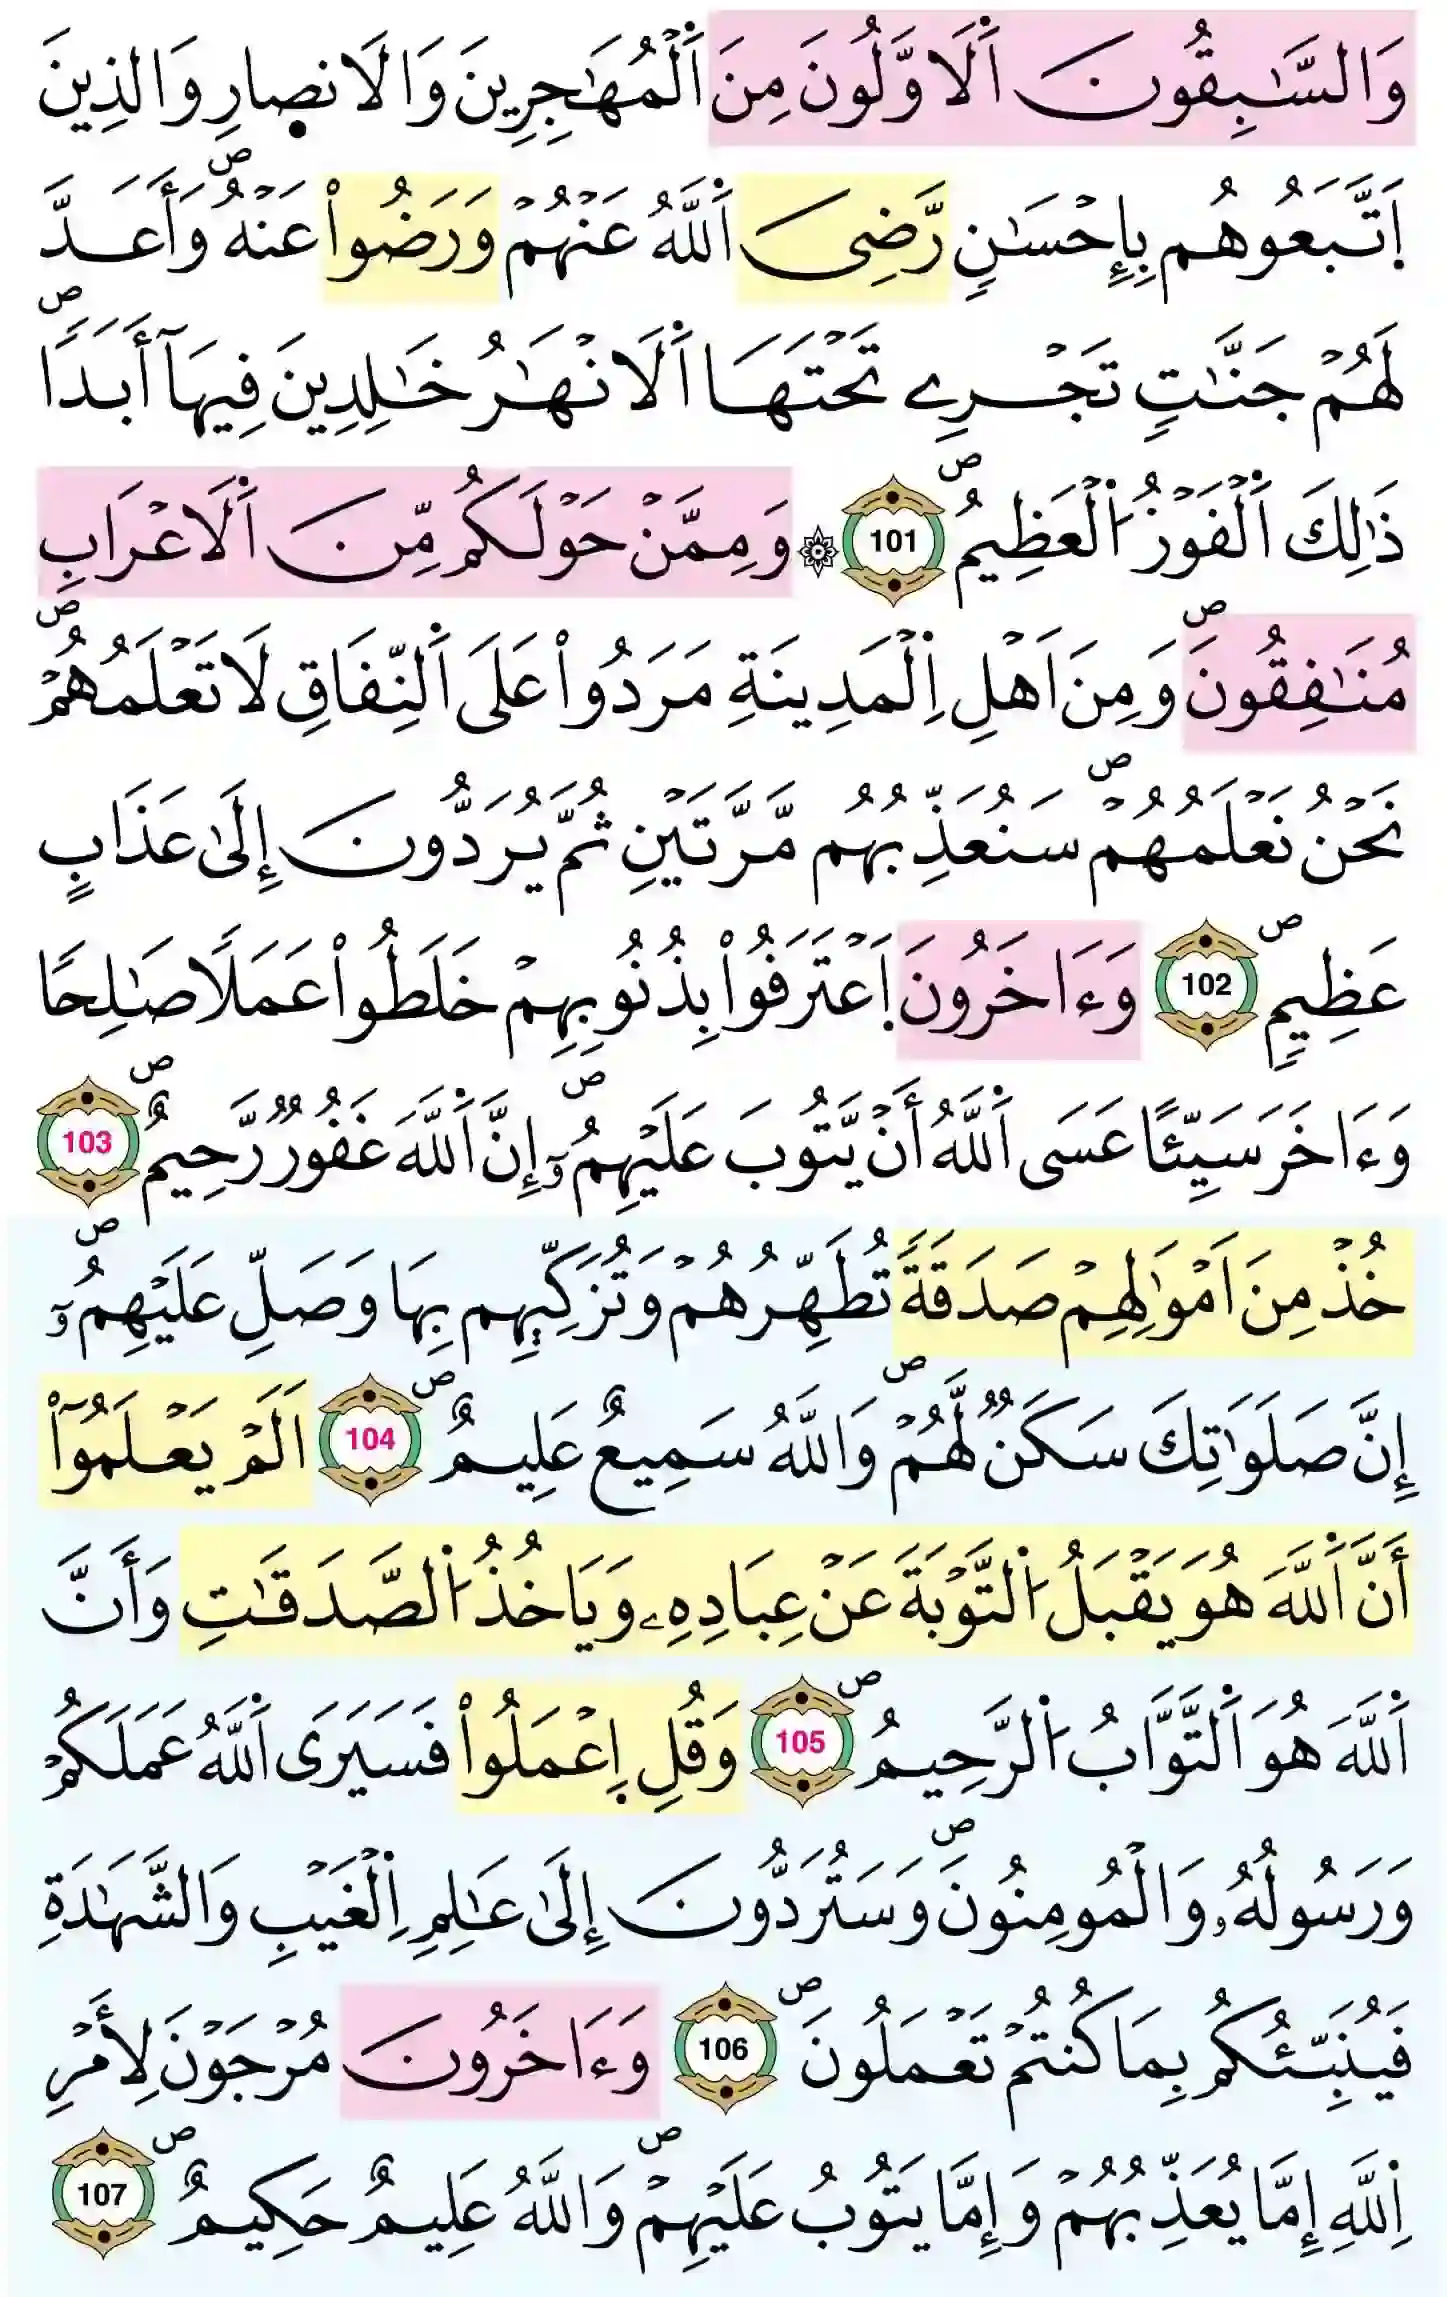 وَالسَّٰبِقُونَ اَ۬لَاوَّلُونَ مِنَ اَ۬لْمُهَٰجِرِينَ وَالَانص۪ارِ وَالذِينَ
اَ۪تَّبَعُوهُم بِإِحْسَٰنٖ رَّضِيَ اَ۬للَّهُ عَنْهُمْ وَرَضُواْ عَنْهُۖ وَأَعَدَّ
لَهُمْ جَنَّٰتٖ تَجْرِے تَحْتَهَا اَ۬لَانْهَٰرُ خَٰلِدِينَ فِيهَآ أَبَداٗۖ
ذَٰلِكَ اَ۬لْفَوْزُ اُ۬لْعَظِيمُۖ 101 ۞ وَمِمَّنْ حَوْلَكُم مِّنَ اَ۬لَاعْرَابِ
مُنَٰفِقُونَۖ وَمِنَ اَهْلِ اِ۬لْمَدِينَةِ مَرَدُواْ عَلَى اَ۬لنِّفَاقِ لَا تَعْلَمُهُمْۖ
نَحْنُ نَعْلَمُهُمْۖ سَنُعَذِّبُهُم مَّرَّتَيْنِ ثُمَّ يُرَدُّونَ إِلَىٰ عَذَابٍ
عَظِيمٖۖ 102 وَءَاخَرُونَ اَ۪عْتَرَفُواْ بِذُنُوبِهِمْ خَلَطُواْ عَمَلاٗ صَٰلِحاٗ
وَءَاخَرَ سَيِّئاً عَسَى اَ۬للَّهُ أَنْ يَّتُوبَ عَلَيْهِمُۥٓۖ إِنَّ اَ۬للَّهَ غَفُورٞ رَّحِيمٌۖ 103
خُذْ مِنَ اَمْوَٰلِهِمْ صَدَقَةٗ تُطَهِّرُهُمْ وَتُزَكّ۪يهِم بِهَا وَصَلِّ عَلَيْهِمُۥٓۖ
إِنَّ صَلَوَٰتِكَ سَكَنٞ لَّهُمْۖ وَاللَّهُ سَمِيعٌ عَلِيمٌۖ 104 اَلَمْ يَعْلَمُوٓاْ
أَنَّ اَ۬للَّهَ هُوَ يَقْبَلُ اُ۬لتَّوْبَةَ عَنْ عِبَادِهِۦ وَيَاخُذُ اُ۬لصَّدَقَٰتِ وَأَنَّ
اَ۬للَّهَ هُوَ اَ۬لتَّوَّابُ اُ۬لرَّحِيمُۖ 105 وَقُلِ اِ۪عْمَلُواْ فَسَيَرَى اَ۬للَّهُ عَمَلَكُمْ
وَرَسُولُهُۥ وَالْمُومِنُونَۖ وَسَتُرَدُّونَ إِلَىٰ عَٰلِمِ اِ۬لْغَيْبِ وَالشَّهَٰدَةِ
فَيُنَبِّئُكُم بِمَا كُنتُمْ تَعْمَلُونَۖ 106 وَءَاخَرُونَ مُرْجَوْنَ لِأَمْرِ
اِ۬للَّهِ إِمَّا يُعَذِّبُهُمْ وَإِمَّا يَتُوبُ عَلَيْهِمْۖ وَاللَّهُ عَلِيمٌ حَكِيمٌۖ 107